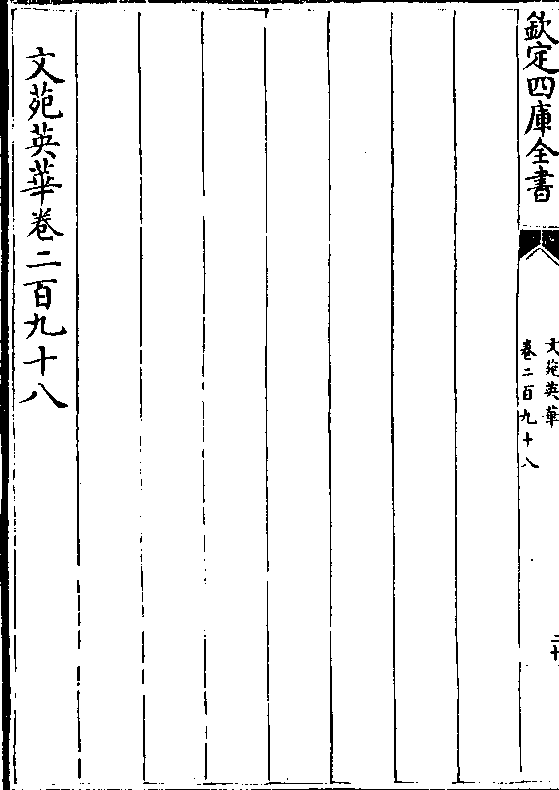 欽定四庫全書
文苑英華
卷二百九十八
二十
文苑英華卷二百九十八